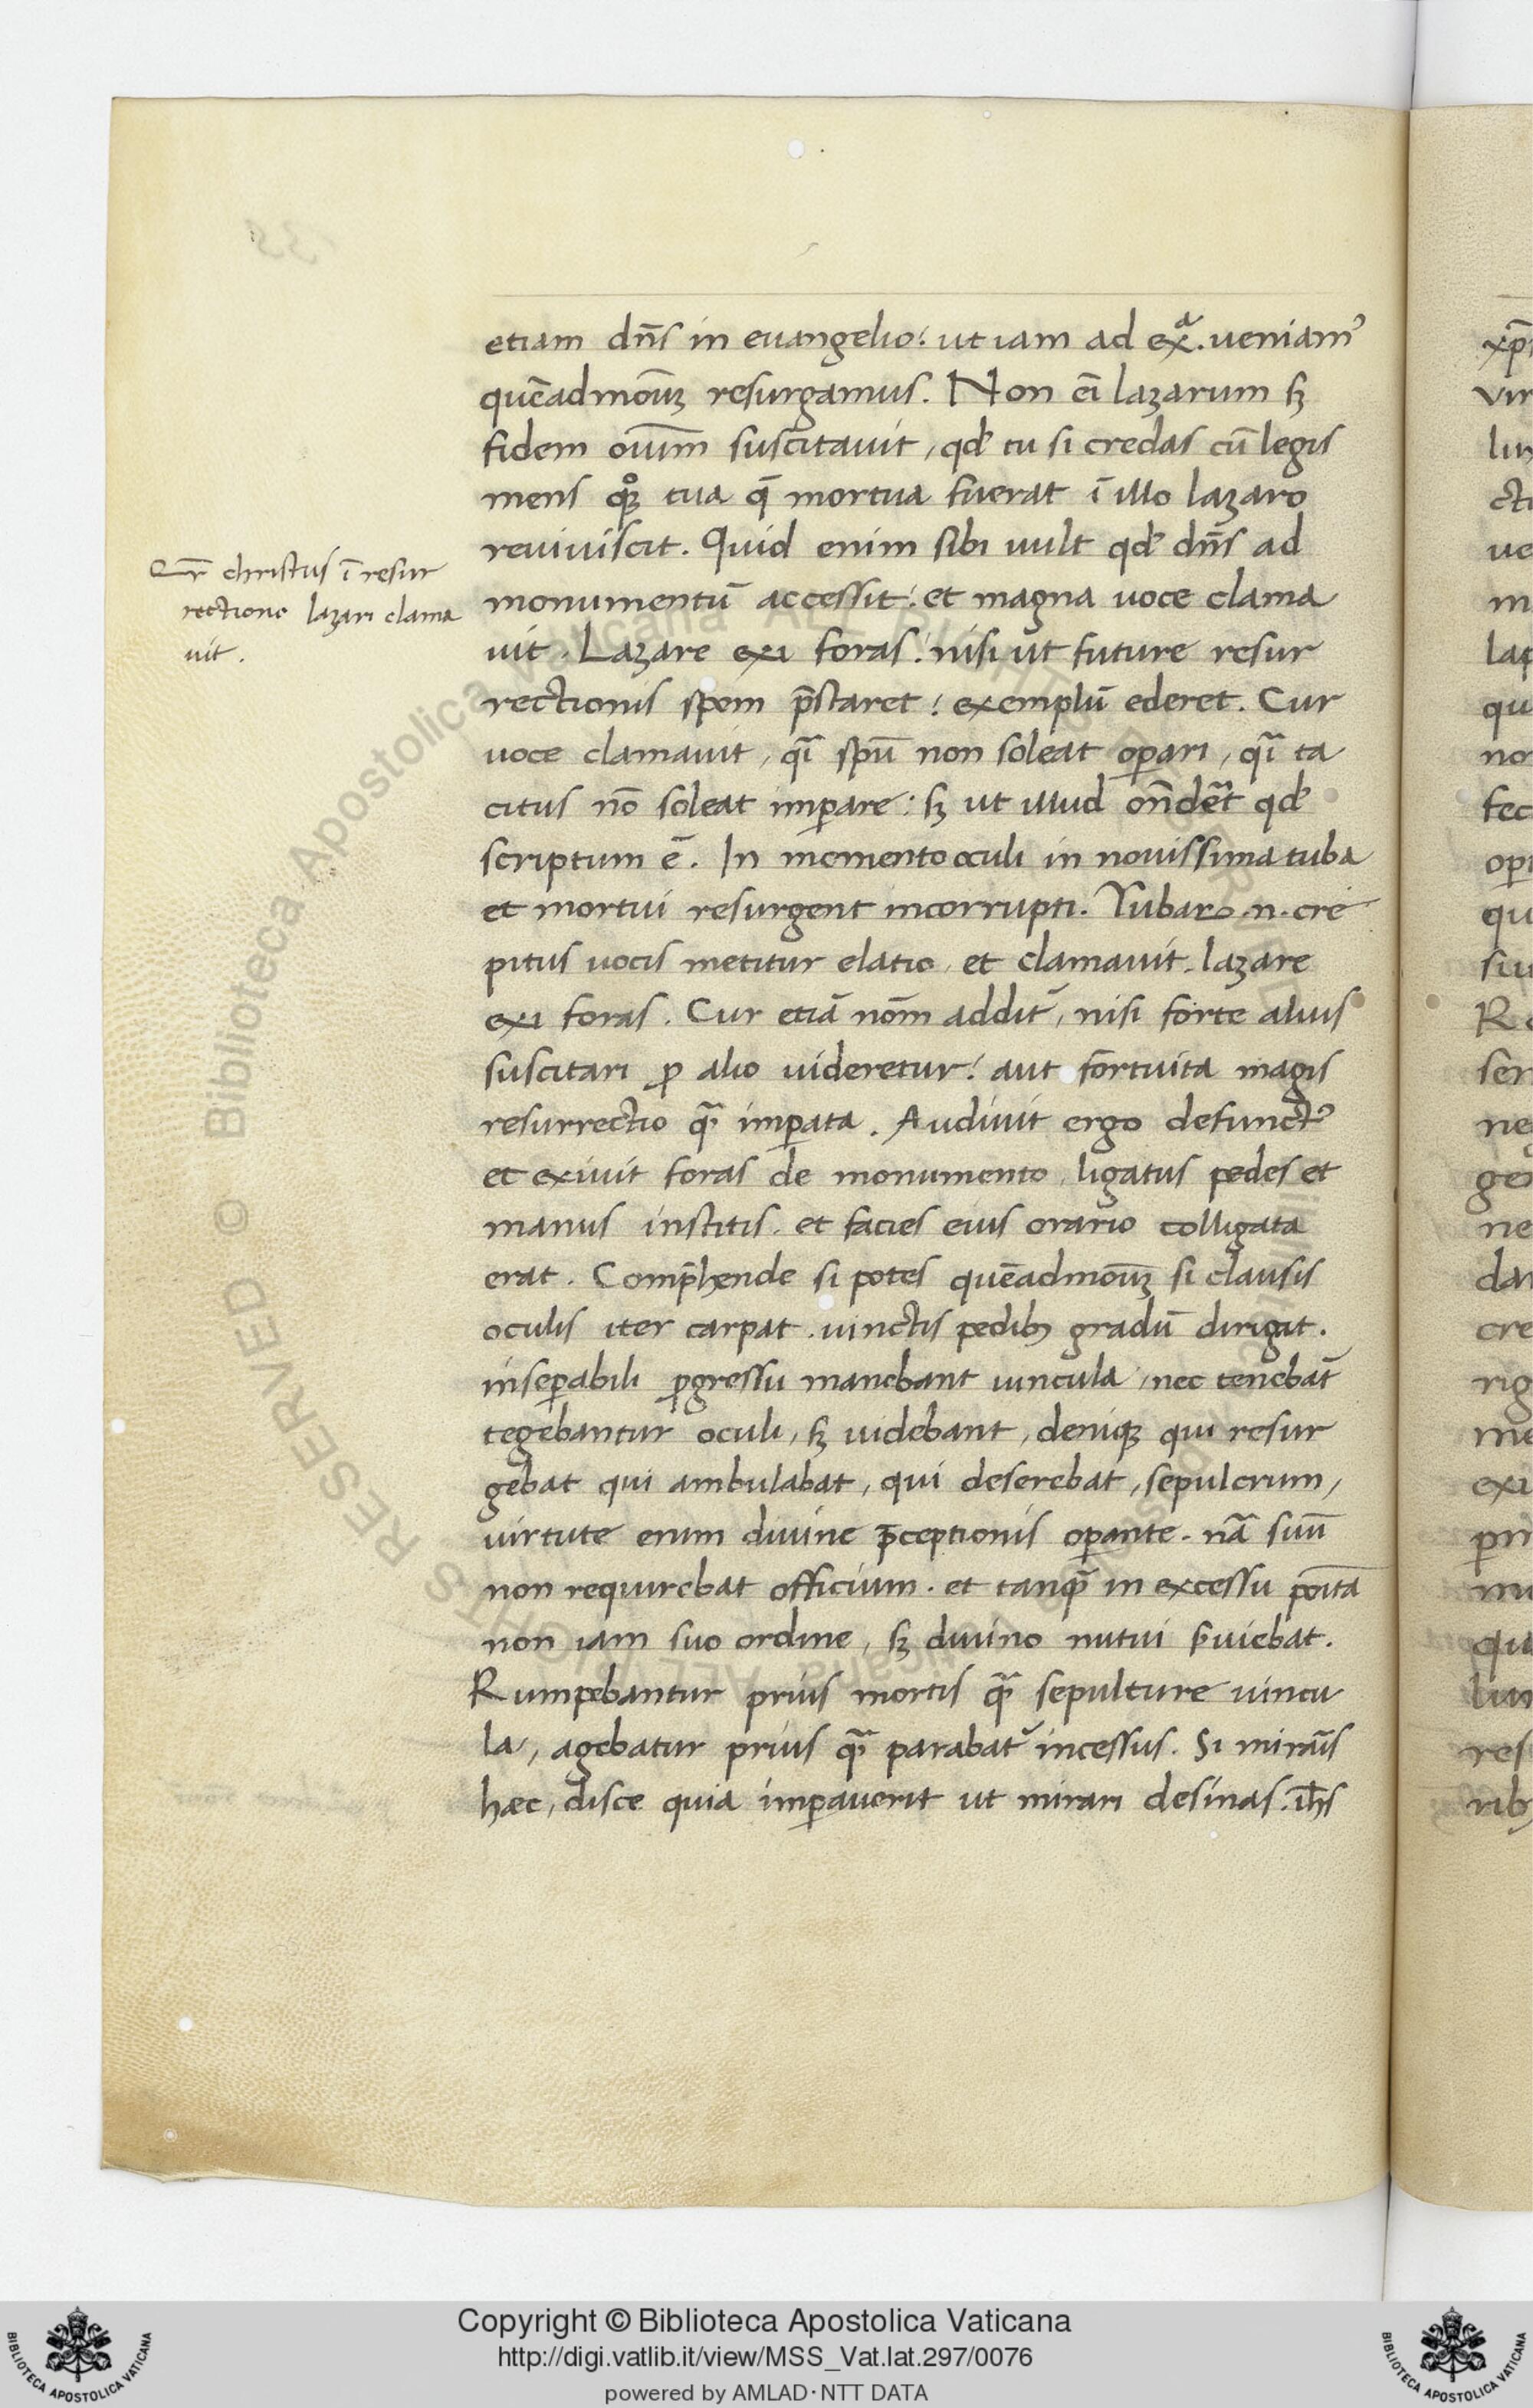 etiam dn̄s in euangelio: ut iam ad exᵃ. ueniamꝰ
quēadmoūꝫ resurgamus. Non ei̅ lazarum sꝫ
fidem oium̅ suscitauit, qđ tu si credas cū legis
mens qꝫᵒ tua q̄ mortua fuerat ī illo lazaro
reuiuiscit. Quid enim sibi uult qđ dn̄s ad
Cur̅ christus ī resur
rectione lazari clama
uit.
monumentū accessit: et magna uoce clama
uit. Lazare exi foras: nisi ut future resur
rectionis spem p̄staret: exemplū ederet. Cur
uoce clamauit, qͣi spū non soleat oꝑari, qͣi ta
citus nō soleat imꝑare: sꝫ ut illud on̄dēt qđ
scriptum ē. In momento oculi in nouissima tuba
et mortui resurgent incorrupti. Tubarꝝ .n. cre
pitus uocis metitur elatio, et clamauit. lazare
exi foras. Cur etiā nōm addit̄, nisi forte alius
suscitari ꝓ alio uideretur: aut fortuita magis
resurrectio qͣ̅ imꝑata. Audiuit ergo defunctꝰ
et exiuit foras de monumento ligatus pedes et
manus institis. et facies eius orario colligata
erat. Comp̄hende si potes quēadmoūꝫ si clausis
oculis iter carpat. uinctis pedibꝫ gradū dirigat.
inseꝑabili ꝓgressu manebant uincula, nec tenebāt
tegebantur oculi, sꝫ uidebant, deniqꝫ qui resur
gebat qui ambulabat, qui deserebat, sepulcrum,
uirtute enim diuine p̄ceptionis oꝑante. nā suū
non requirebat officium. et tanqͣ̅ in excessu poita̅
non iam suo ordine, sꝫ diuino nutui s̄uiebat.
Rumpebantur prius mortis qͣ̅ sepulture uincu
la, agebatur prius qͣ̅ parabat᷑ incessus. Si mirār̄is
hæc, disce quia imꝑauerit ut mirari desinas. ih̄s
Copyright © Biblioteca Apostolica Vaticana
http://digi.vatlib.it/view/MSS_Vat.lat.297/0076
powered by AMLAD·NTT DATA